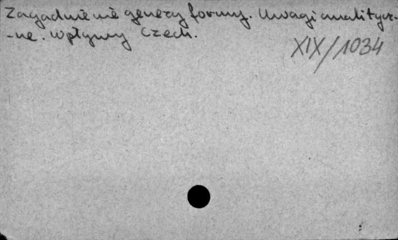 Zagadnienie genezy formy. Uwagi analitycz-
-ne. Wpływy Czech.
XIX/1034